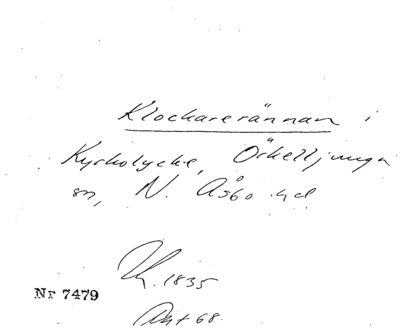 Klockarerännan i
Kyrkolycke, Örkelljunga
sn, N. Åsbo hd
1835
Nr 7479
Okt 68.